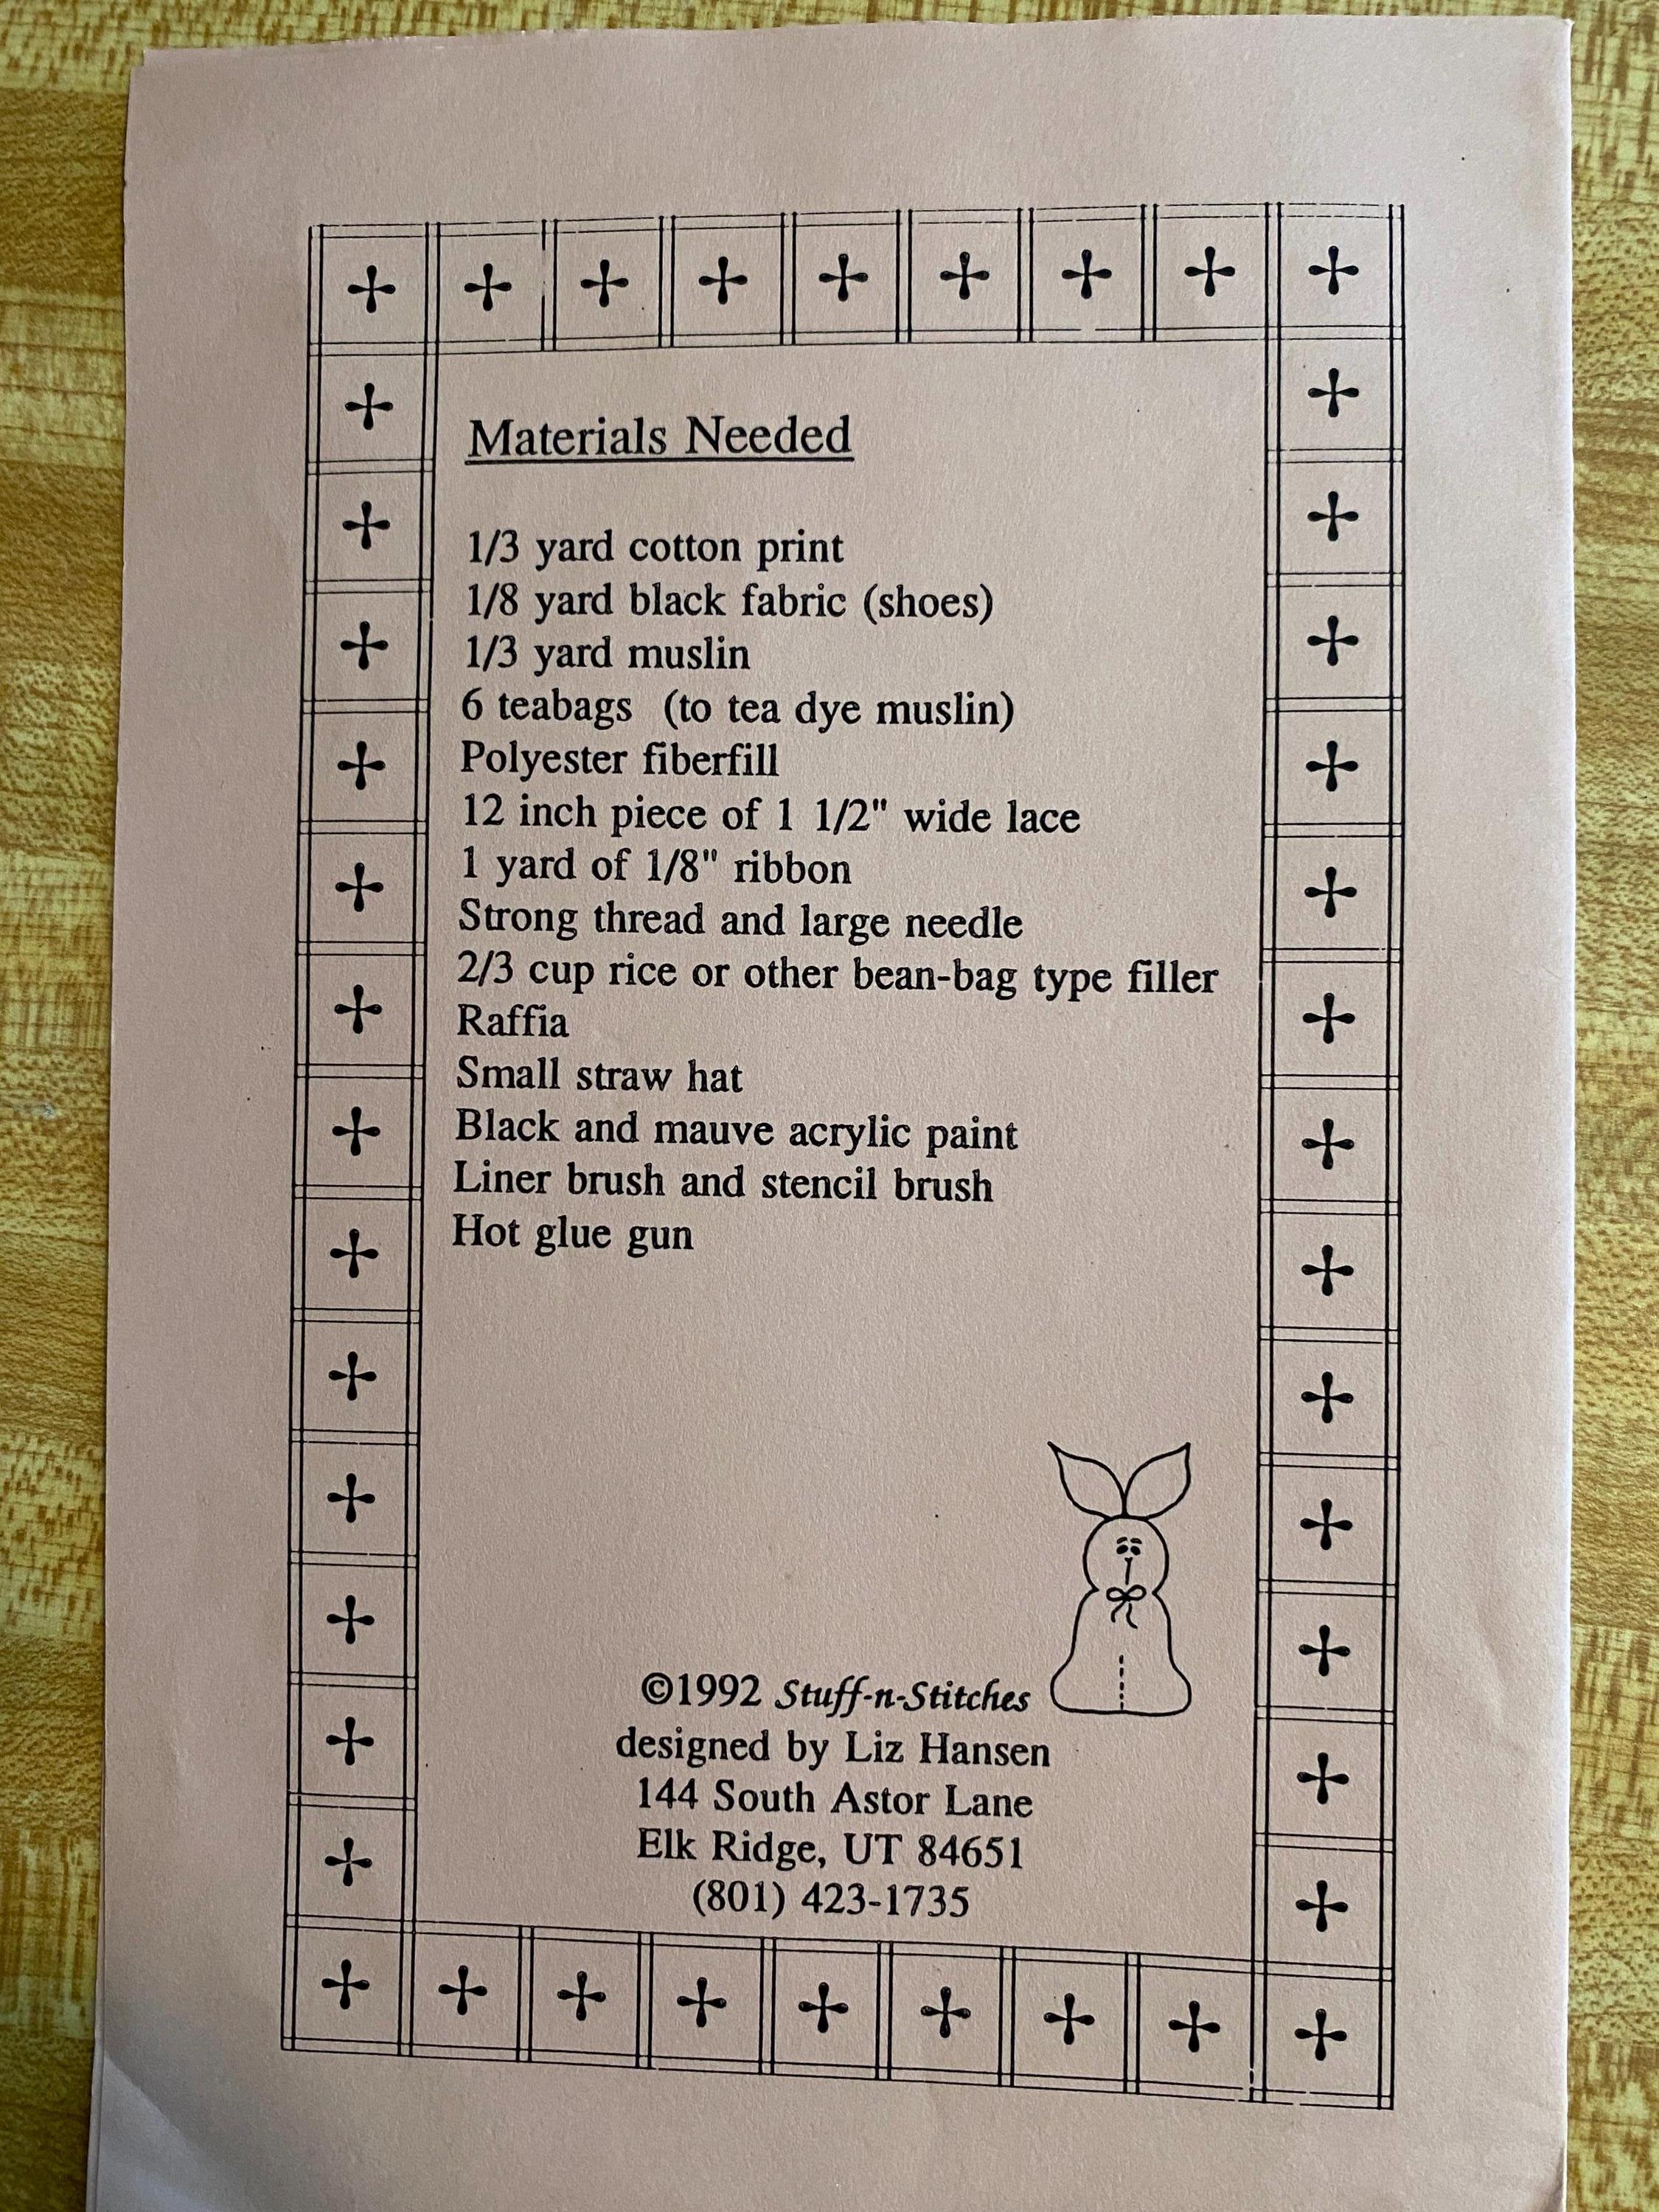 Materials Needed
1/3 yard cotton print
1/8 yard black fabric (shoes)
1/3 yard muslin
6 teabags (to tea dye muslin)
Polyester fiberfill
12 inch piece of 1 1/2" wide lace
1 yard of 1/8" ribbon
Strong thread and large needle
2/3 cup rice or other bean-bag type filler
Raffia
Small straw hat
Black and mauve acrylic paint
Liner brush and stencil brush
Hot glue gun
©1992 Stuff-n-Stitches
designed by Liz Hansen
144 South Astor Lane
Elk Ridge, UT 84651
(801) 423-1735